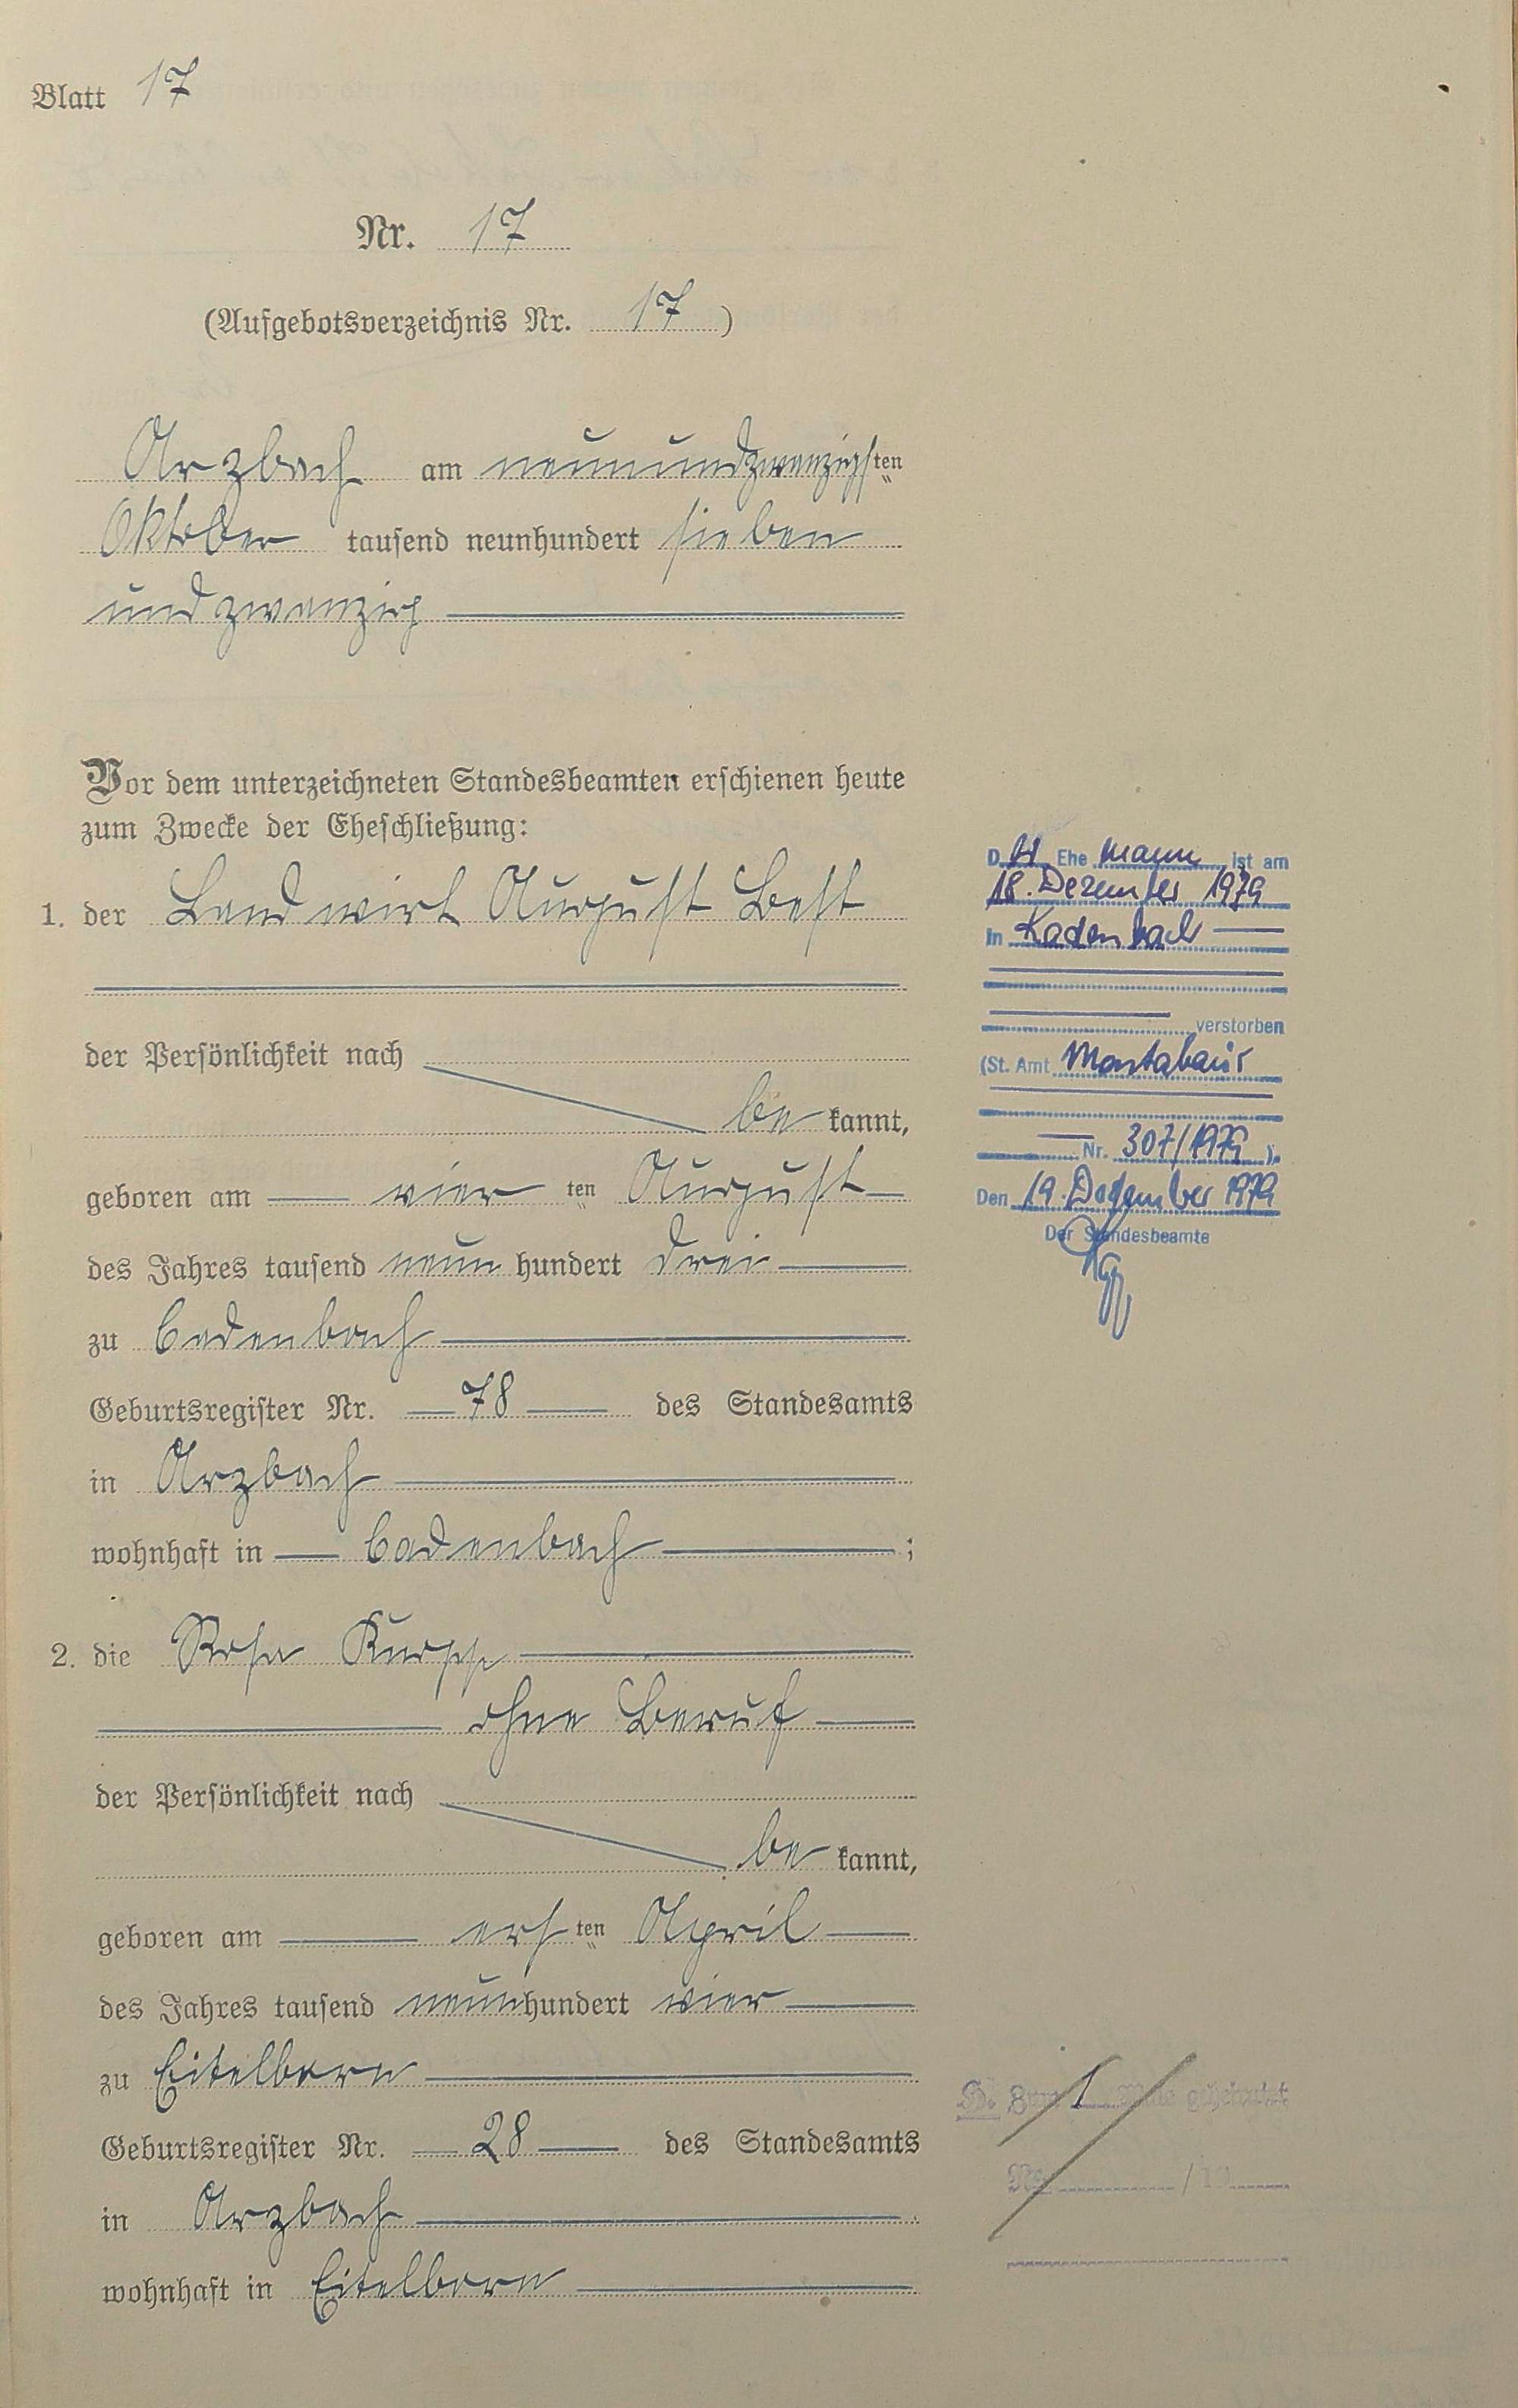 Blatt 17
Nr. 17
(Aufgebotsverzeichnis Nr. 17)
Arzbach am neunundzwanzigsten
Oktober tausend neunhundert sieben
und zwanzig
Vor dem unterzeichneten Standesbeamten erschienen heute
zum Zwecke der Eheschließung:
1. der Landwirt August Best
der Persönlichkeit nach
be kannt,
geboren am vier ten August
des Jahres tausend neun hundert drei
zu Cadenbach
Geburtsregister Nr. 78 des Standesamts
in Arzbach
wohnhaft in Cadenbach ;
2. die Rosa
ohne Beruf
der Persönlichkeit nach
be kannt,
geboren am ers ten April
des Jahres tausend neunhundert vier
zu Eitelborn
Geburtsregister Nr. 28 des Standesamts
in Arzbach
wohnhaft in Eitelborn
D Ehe mann ist am
18. Dezember 1979
in Kadenbach
verstorben
(St. Amt Montabaur
Nr. 307/1979 ).
Den 19. Dezember 1979
Der Standesbeamte
1